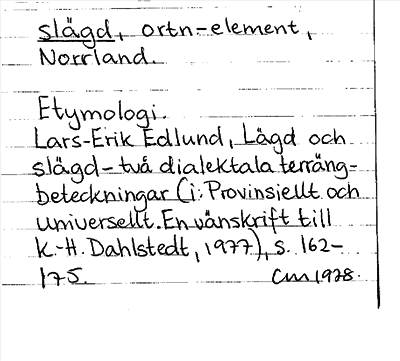 slägd, ortn-element,
Norrland.
Etymologi.
Lars-Erik Edlund, Lägd och
slägd – två dialektala terräng-
beteckningar (i: Provinsiellt och
universellt. En vänskrift till
K.-H. Dahlstedt, 1977), s. 162–
175.
CM 1978.